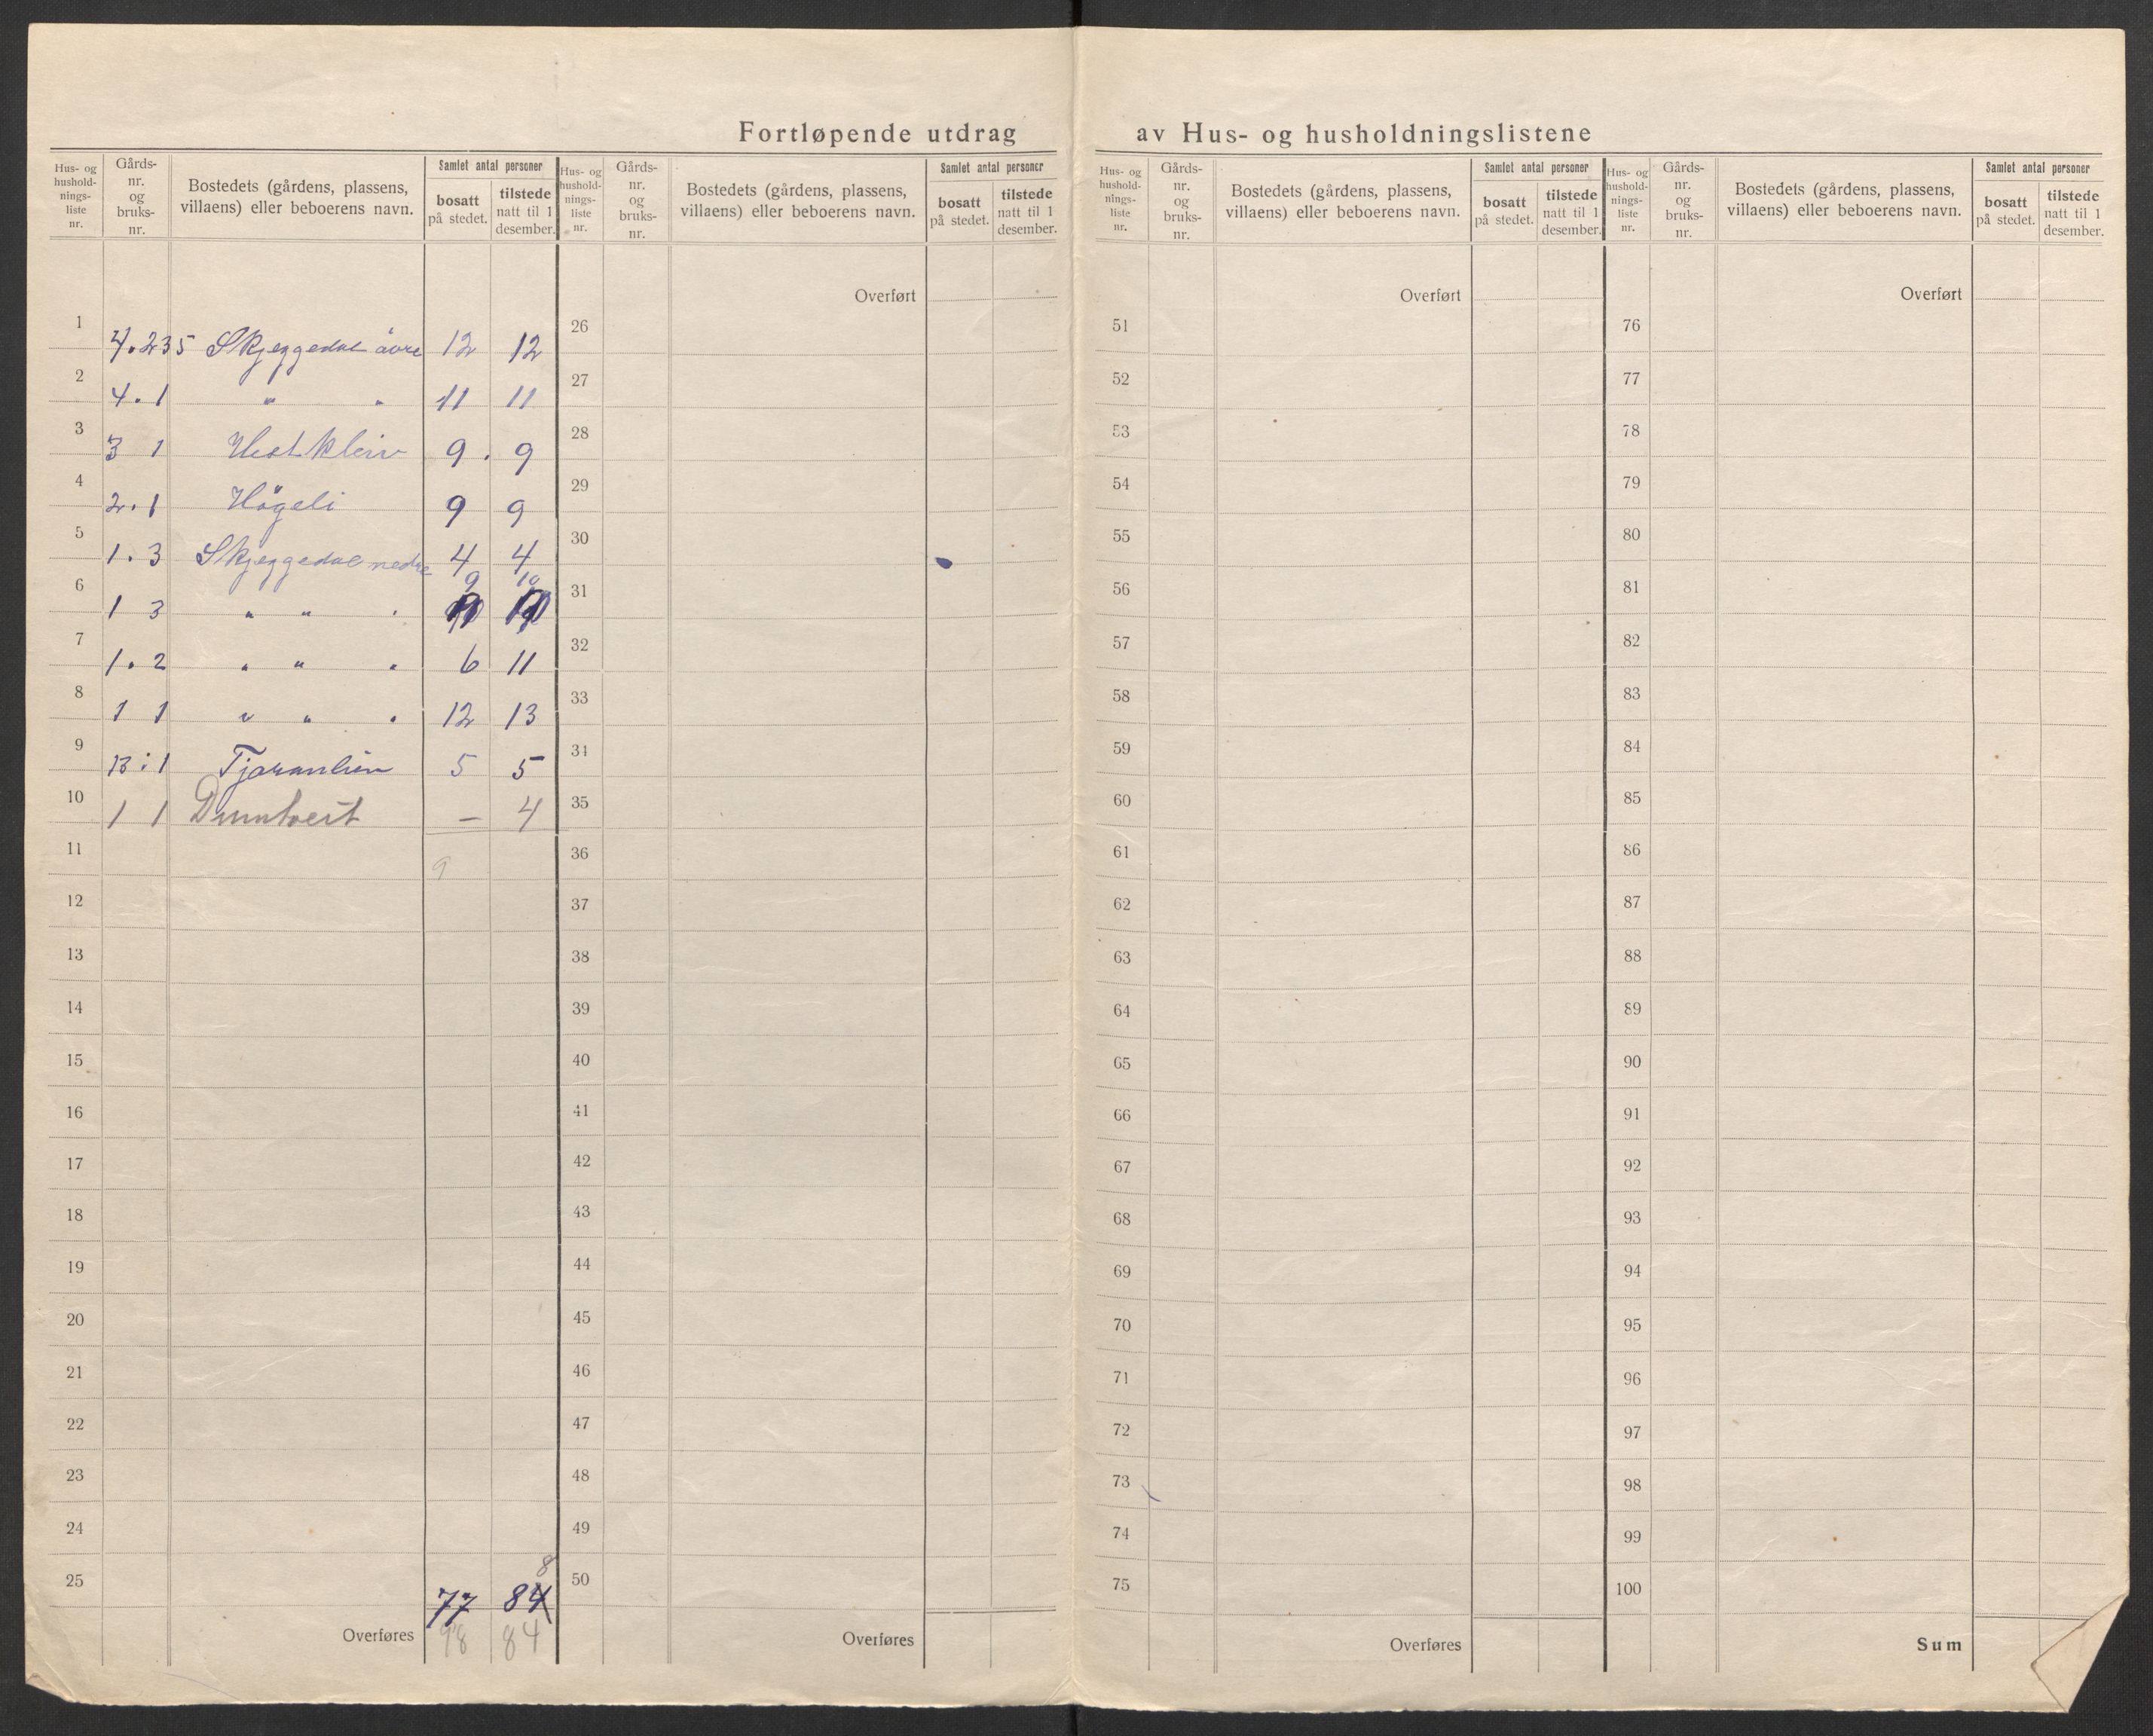 Fortløpende utdrag av Hus- og husholdningslistene
Hus- og hushold-nings-liste nr. Gårds-nr. og bruks-nr. Bostedets (gårdens, plassens, villaens) eller beboerens navn. Samlet antal personer bosatt på stedet. tilstede natt til 1 desember.
1 4.235 Skjeggedal åvre 12 12
2 4.1 " " 11 11
3 3 1 Hestkleiv 9. 9
4 2.1 Högeli 9 9
5 1.3 Skjeggedal nedre 4 4
6 1 3 " " " 9 10
7 1.2 " " " 6 11
8 1 1 " " " 12 13
9 13:1 Tjaranlien 5 5
10 1 1 — 4
11 9
12
13
14
15
16
17
18
19
20
21
22
23
24
8
25 77 84
Overføres 84
Hus- og hushold-nings-liste nr. Gårds-nr. og bruks-nr. Bostedets (gårdens, plassens, villaens) eller beboerens navn. Samlet antal personer bosatt på stedet. tilstede natt til 1 desember.
Overført
26
27
28
29
30
31
32
33
34
35
36
37
38
39
40
41
42
43
44
45
46
47
48
49
50
Overføres
Hus- og hushold-nings-liste nr. Gårds-nr. og bruks-nr. Bostedets (gårdens, plassens, villaens) eller beboerens navn. Samlet antal personer bosatt på stedet. tilstede natt til 1 desember.
Overført
51
52
53
54
55
56
57
58
59
60
61
62
63
64
65
66
67
68
69
70
71
72
73
74
75
Overføres
Hus- og hushold-nings-liste nr. Gårds-nr. og bruks-nr. Bostedets (gårdens, plassens, villaens) eller beboerens navn. Samlet antal personer bosatt på stedet. tilstede natt til 1 desember.
Overført
76
77
78
79
80
81
82
83
84
85
86
87
88
89
90
91
92
93
94
95
96
97
98
99
100
Sum